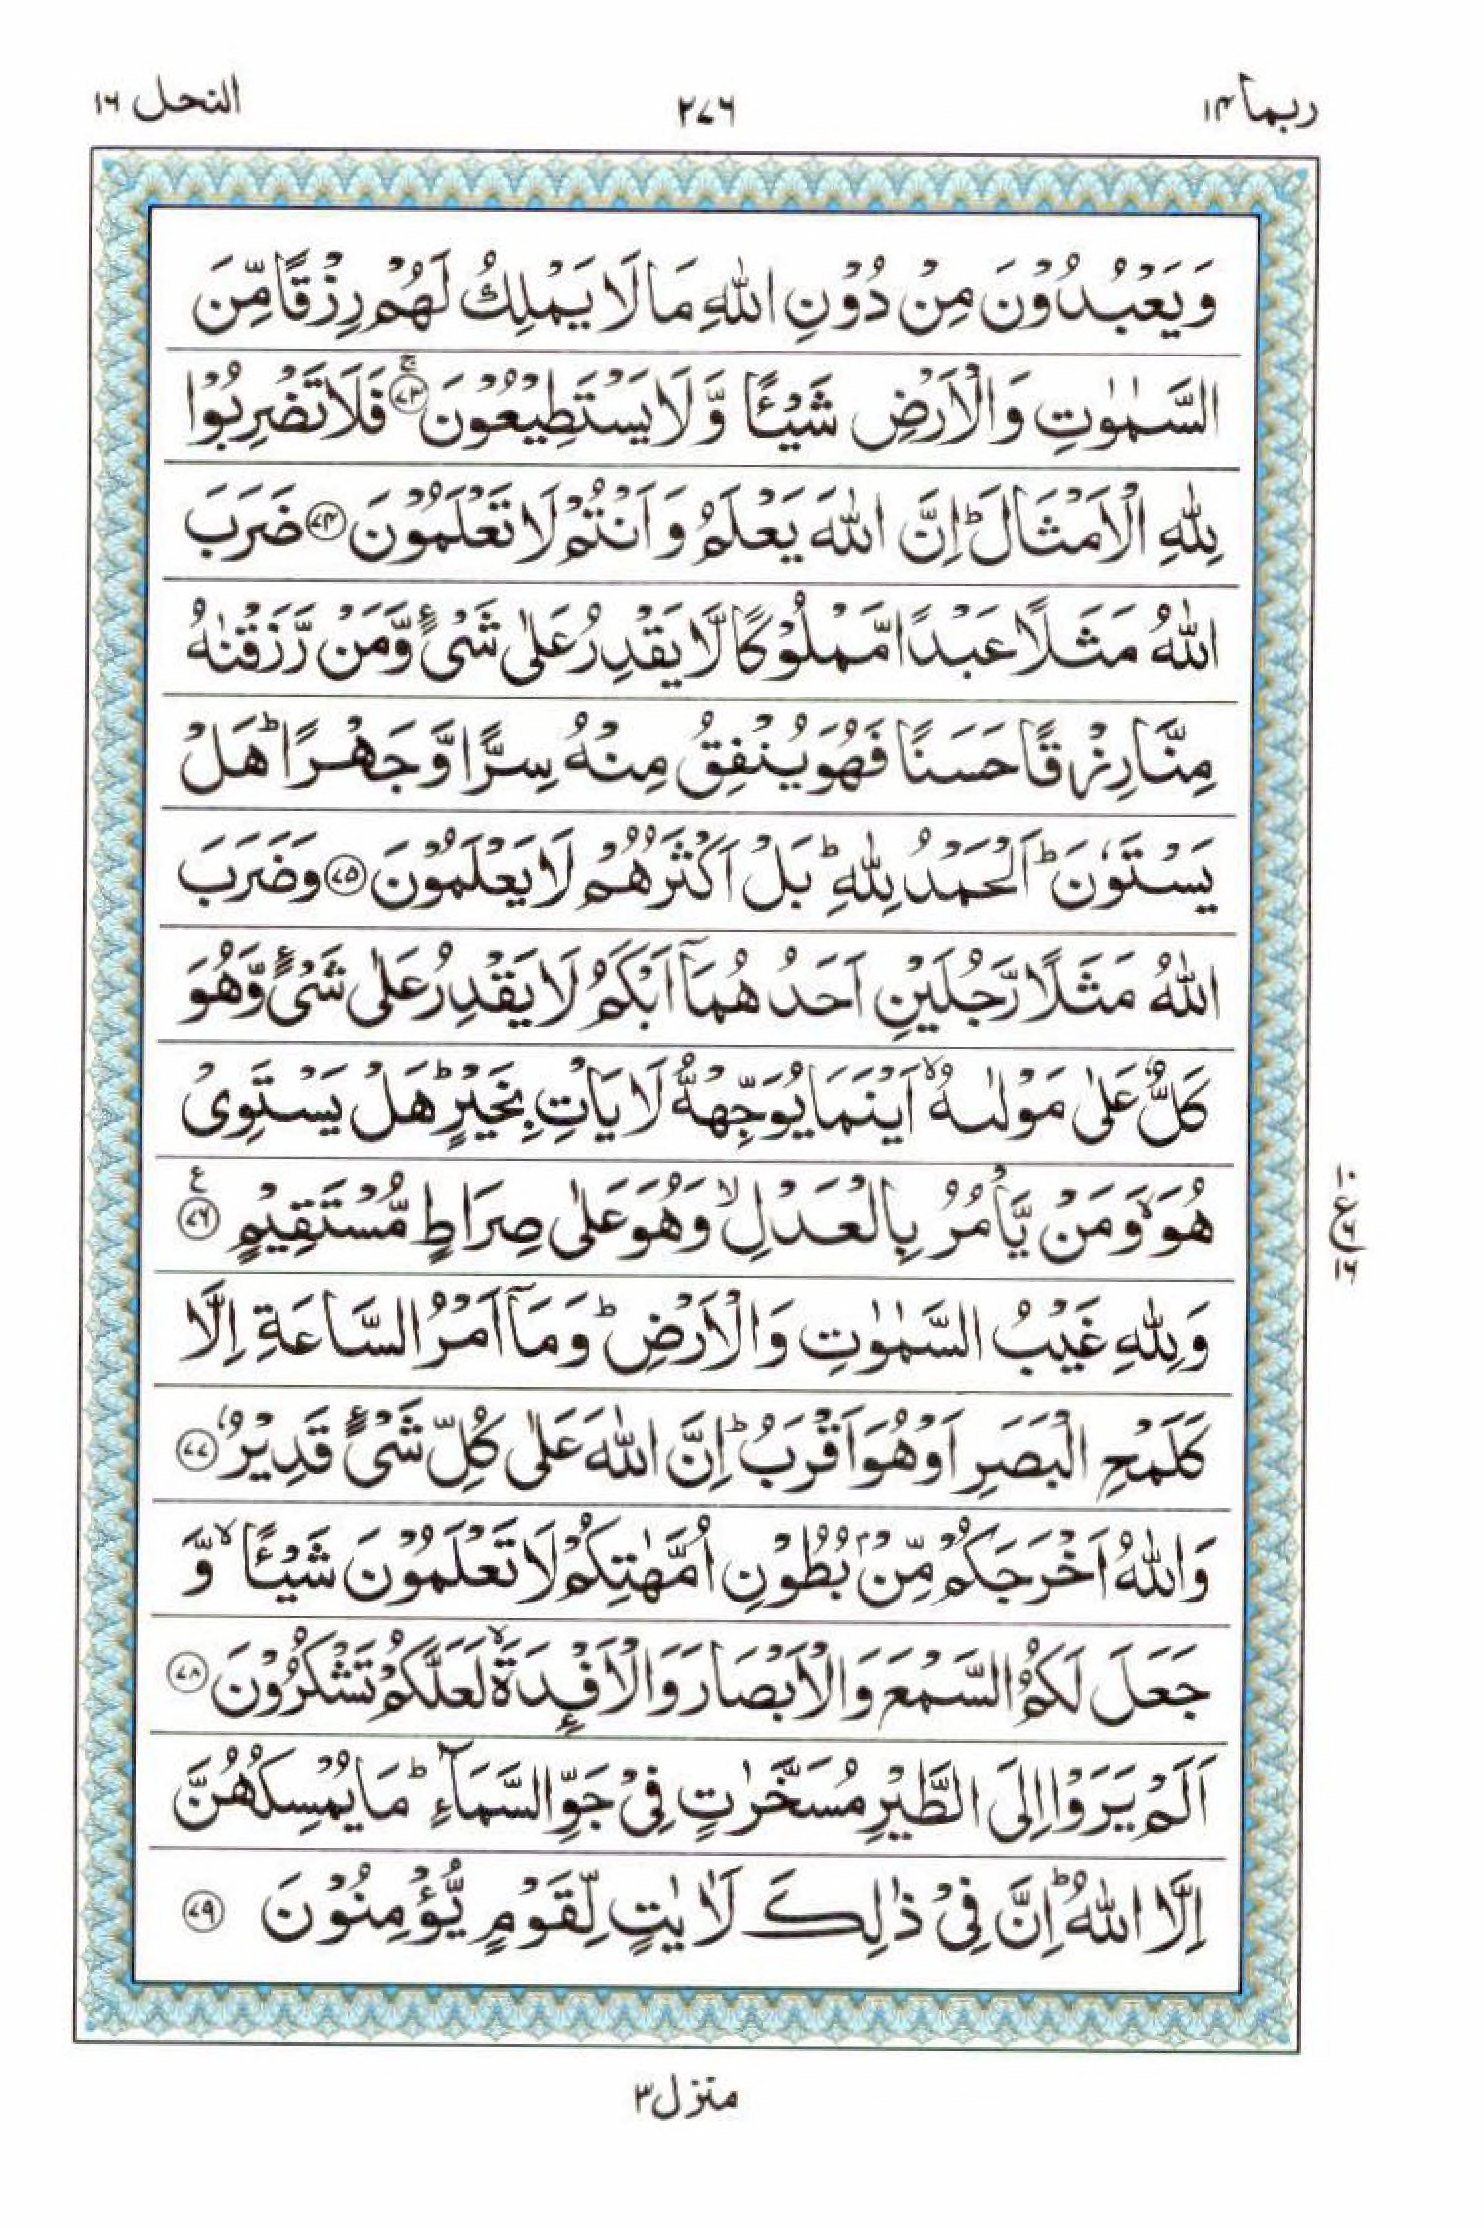 ربما ١٤
٢٧٦
النحل ١٦
وَيَعْبُدُوْنَ مِنْ دُوْنِ اللّٰهِ مَا لَا يَمْلِكُ لَهُمْ رِزْقًا مِّنَ
السَّمٰوٰتِ وَالْاَرْضِ شَيْـًٔا وَّلَا يَسْتَطِيْعُوْنَ ۚ﴿٧٣﴾ فَلَا تَضْرِبُوْا
لِلّٰهِ الْاَمْثَالَ ؕ اِنَّ اللّٰهَ يَعْلَمُ وَاَنْتُمْ لَا تَعْلَمُوْنَ ﴿٧٤﴾ ضَرَبَ
اللّٰهُ مَثَلًا عَبْدًا مَّمْلُوْكًا لَّا يَقْدِرُ عَلٰى شَيْءٍ وَّمَنْ رَّزَقْنٰهُ
مِنَّا رِزْقًا حَسَنًا فَهُوَ يُنْفِقُ مِنْهُ سِرًّا وَّجَهْرًا ؕ هَلْ
يَسْتَوٗنَ ؕ اَلْحَمْدُ لِلّٰهِ ؕ بَلْ اَكْثَرُهُمْ لَا يَعْلَمُوْنَ ﴿٧٥﴾ وَضَرَبَ
اللّٰهُ مَثَلًا رَّجُلَيْنِ اَحَدُهُمَاۤ اَبْكَمُ لَا يَقْدِرُ عَلٰى شَيْءٍ وَّهُوَ
كَلٌّ عَلٰى مَوْلٰىهُ ۙ اَيْنَمَا يُوَجِّهْهُّ لَا يَاْتِ بِخَيْرٍ ؕ هَلْ يَسْتَوِيْ
هُوَ ۙ وَمَنْ يَّاْمُرُ بِالْعَدْلِ ۙ وَهُوَ عَلٰى صِرَاطٍ مُّسْتَقِيْمٍ ﴿٧٦﴾ ع
١٠
ع
٦
١٦
وَلِلّٰهِ غَيْبُ السَّمٰوٰتِ وَالْاَرْضِ ؕ وَمَاۤ اَمْرُ السَّاعَةِ اِلَّا
كَلَمْحِ الْبَصَرِ اَوْ هُوَ اَقْرَبُ ؕ اِنَّ اللّٰهَ عَلٰى كُلِّ شَيْءٍ قَدِيْرٌ ﴿٧٧﴾
وَاللّٰهُ اَخْرَجَكُمْ مِّنْۢ بُطُوْنِ اُمَّهٰتِكُمْ لَا تَعْلَمُوْنَ شَيْـًٔا ۙ وَّ
جَعَلَ لَكُمُ السَّمْعَ وَالْاَبْصَارَ وَالْاَفْـِٕدَةَ ۙ لَعَلَّكُمْ تَشْكُرُوْنَ ﴿٧٨﴾
اَلَمْ يَرَوْا اِلَى الطَّيْرِ مُسَخَّرٰتٍ فِيْ جَوِّ السَّمَآءِ ؕ مَا يُمْسِكُهُنَّ
اِلَّا اللّٰهُ ؕ اِنَّ فِيْ ذٰلِكَ لَاٰيٰتٍ لِّقَوْمٍ يُّؤْمِنُوْنَ ﴿٧٩﴾
منزل ٣